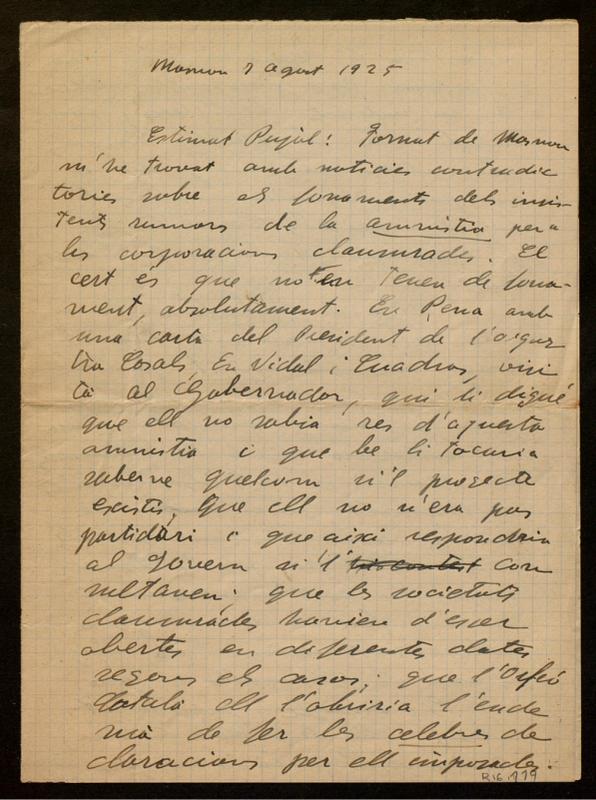 Masnou 7 agost 1925
Estimat Pujol! Tornat de Masnou
m'he trovat amb noticies contradic
tories sobre els fonaments dels insis-
tents rumors de la amnistia per a
les corporacions clausurades. El
cert és que no'en tenen de fona-
ment, absolutament. En Pena amb
una carta del President de l'orques
tra Casals, En Vidal i Cuadras, visi
tà al Gobernador, qui li digué
que ell no sabia res d'aquesta
amnistia i que be li tocaria
saberne quelcom si'l projecte
existis, que ell no n'era pas
partidàri i que aixi respondria
al Govern si'l con
sultaven; que les societats
clausurades havien d'esser
obertes en diferentes dates
segons els casos; que l'Orfeó
Català ell l'obriria l'ende
mà de fer les celebres de
claracions per ell imposades.
R.16.979